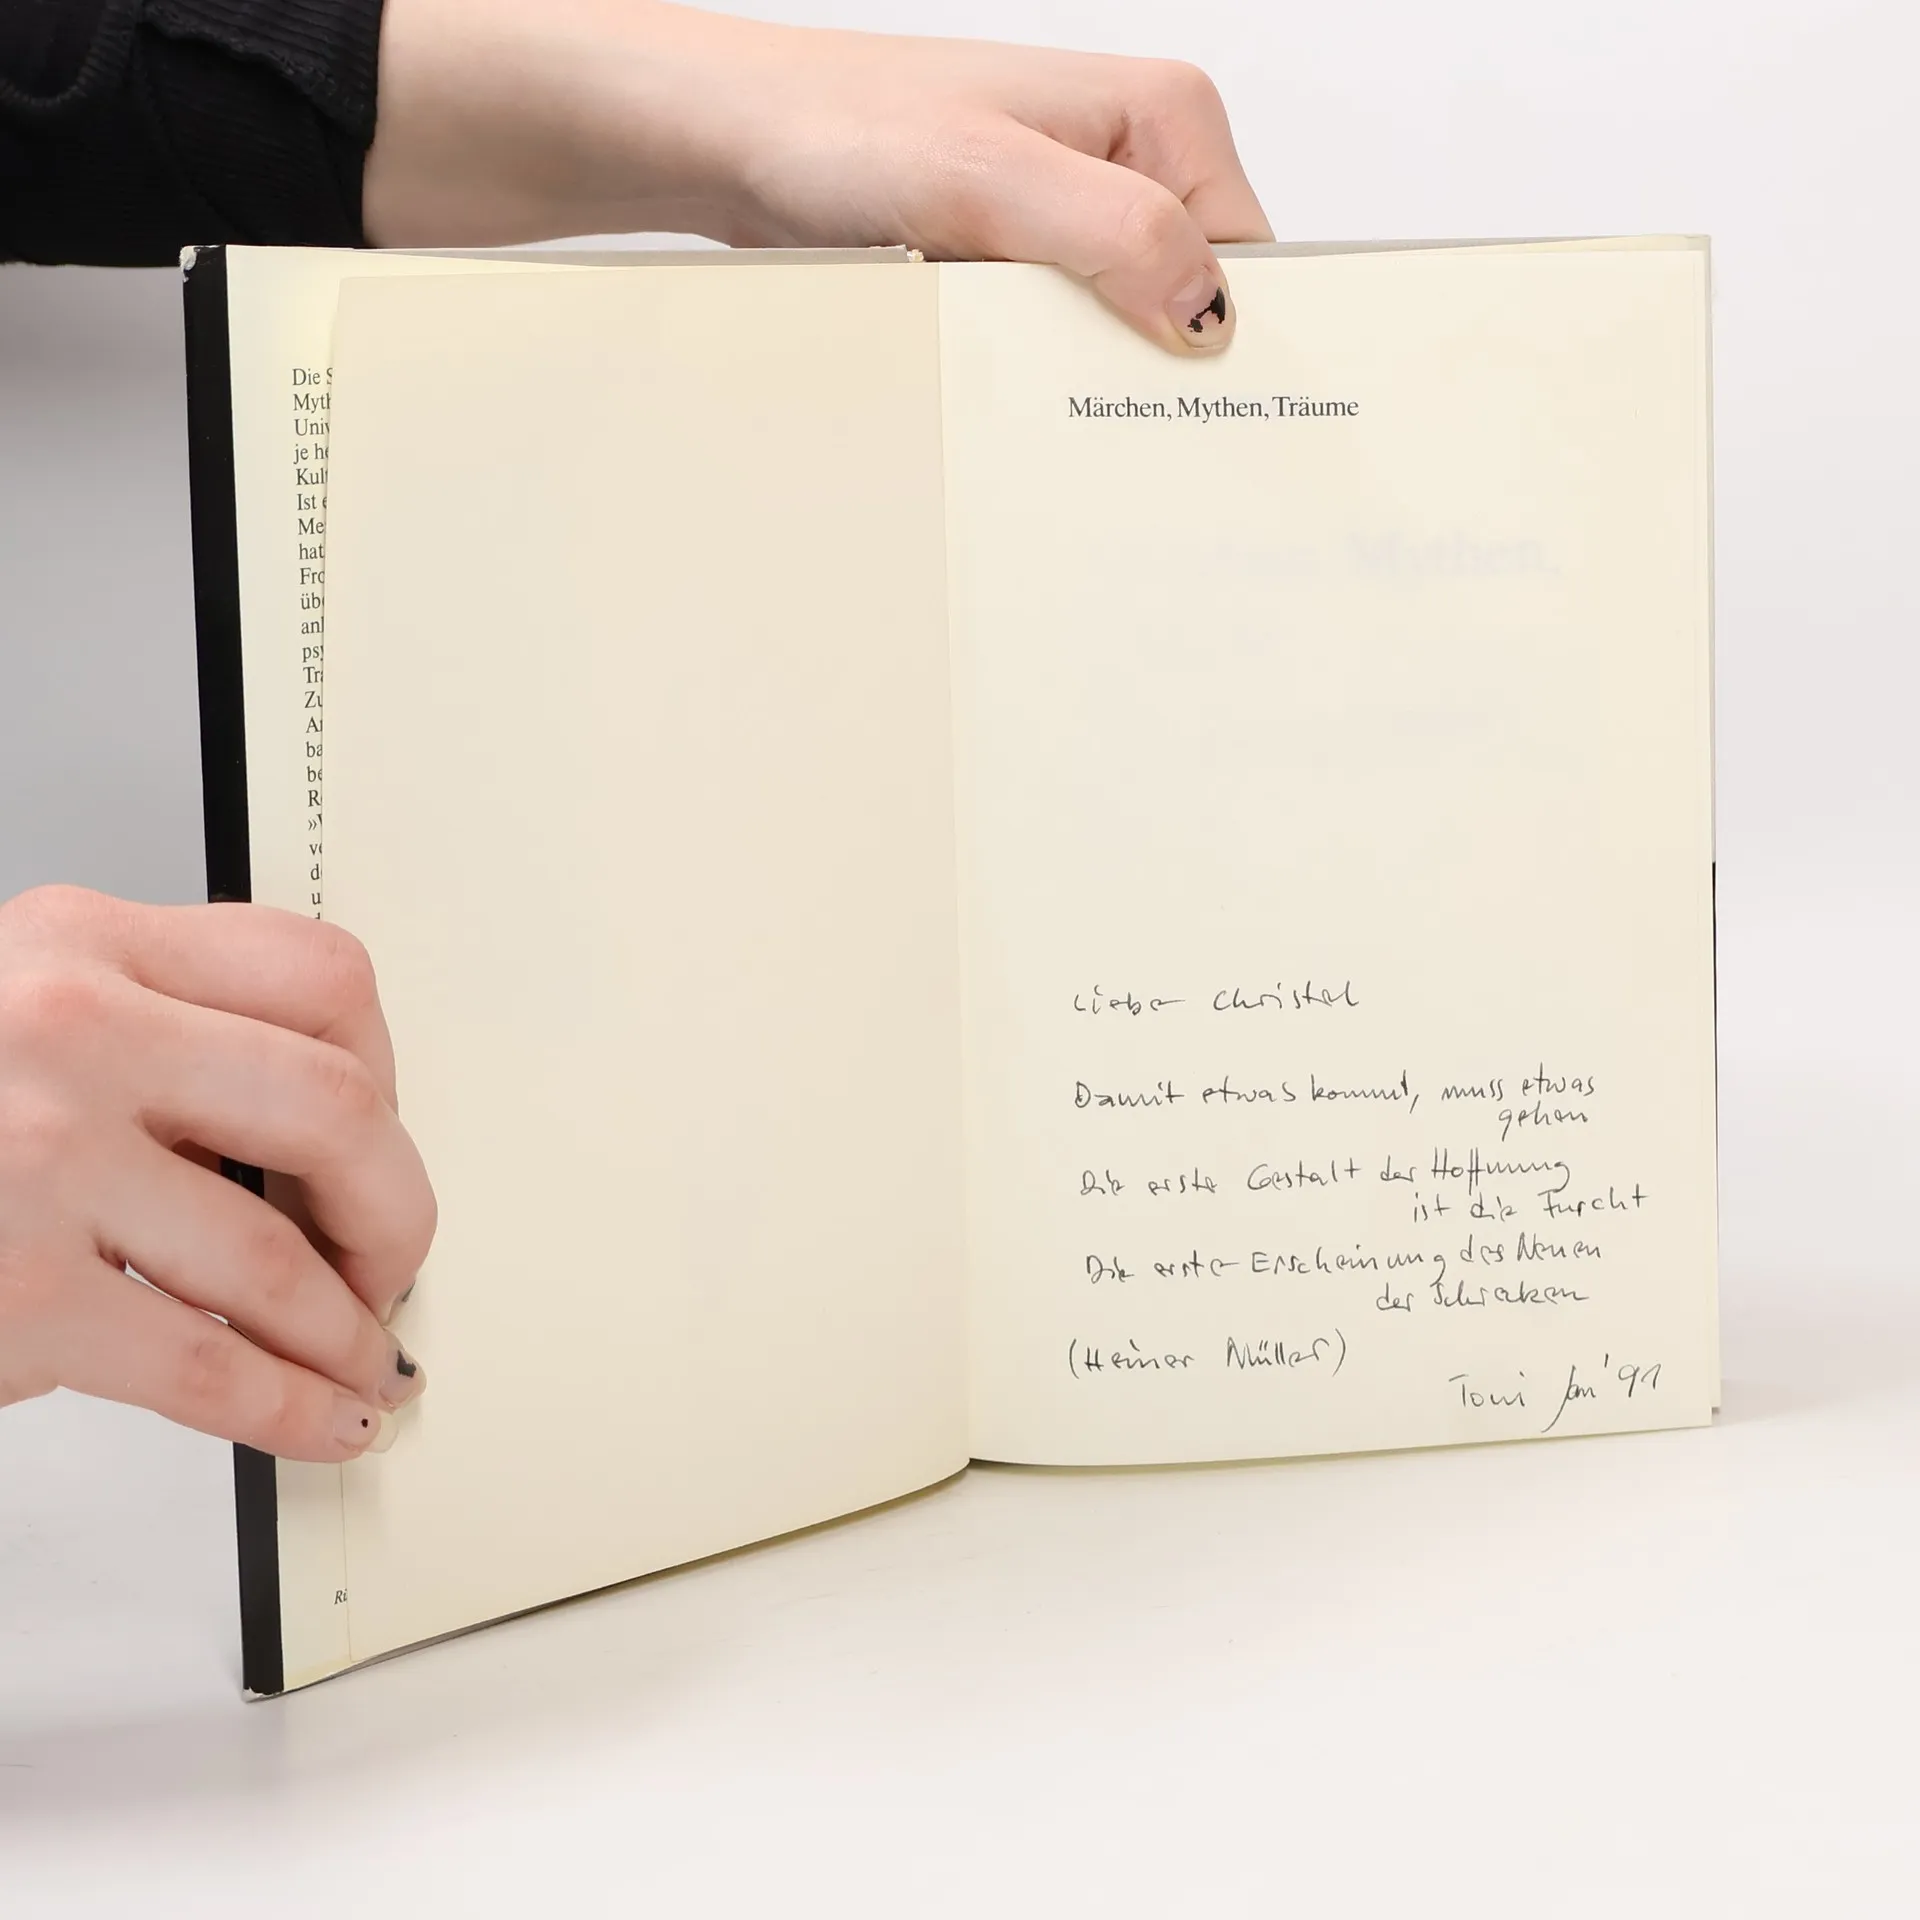 Die S
Myth
Univ
je he
Kult
Ist e
Me
hat
Fro
übe
anl
psy
Tra
Zu
An
ba
be
R
»V
ve
de
u
Rü
Märchen, Mythen, Träume
Mythen,
Liebe Christel
Damit etwas kommt, muss etwas
gehen
Die erste Gestalt der Hoffnung
ist die Furcht
Die erste Erscheinung des Neuen
der Schrecken
(Heiner Müller)
Toni Jan '91